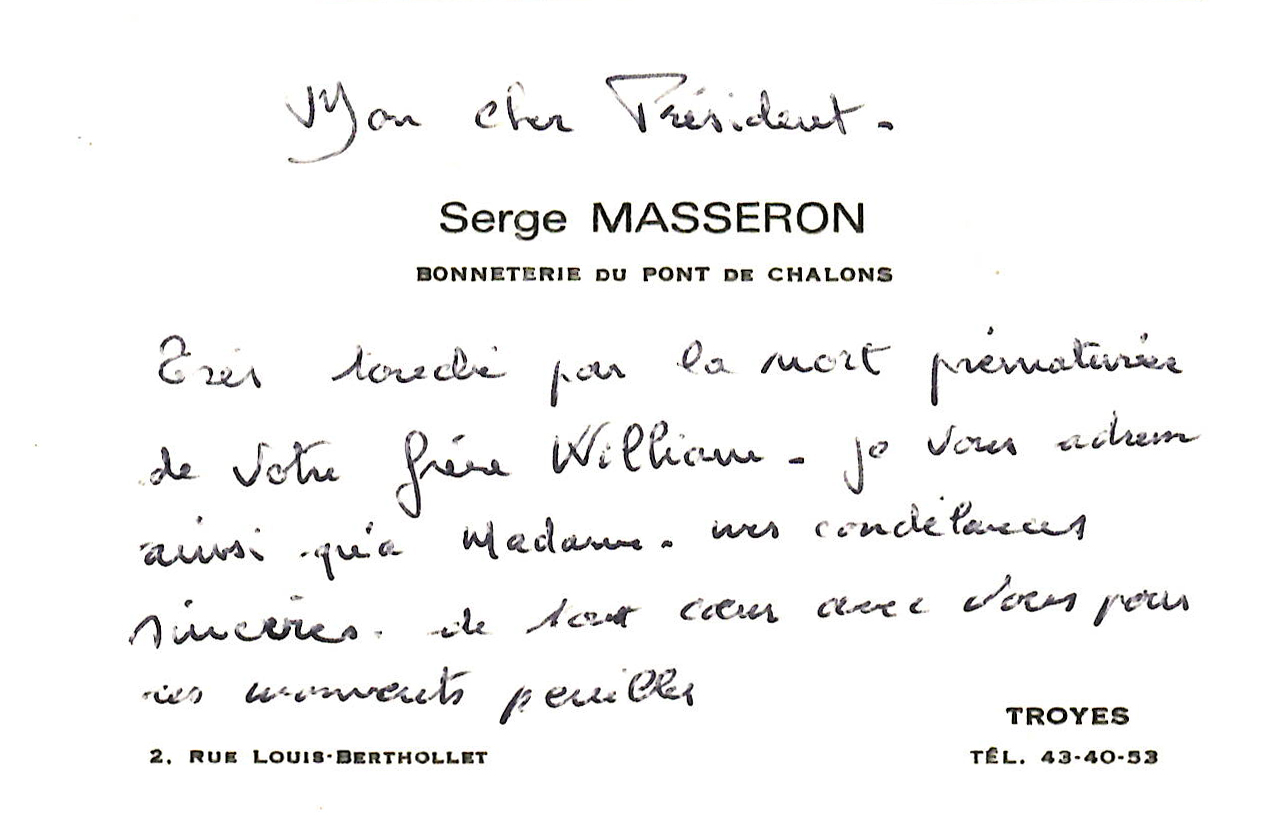 Mon cher Président.
Serge MASSERON
BONNETERIE DU PONT DE CHALONS
Très touché par la mort prématurée
de votre frère William - je vous adresse
ainsi qu'à Madame - mes condoléances
sincères. de tout cœur avec vous pour
ces moments pénibles
TROYES
2, RUE LOUIS-BERTHOLLET TÉL. 43-40-53